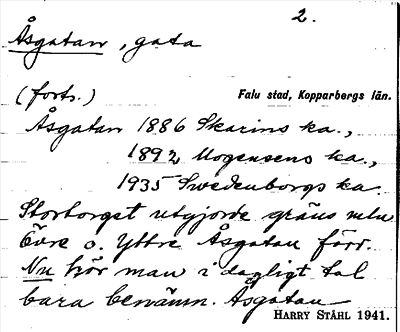 2.
Åsgatan, gata
(forts.) Falu stad, Kopparbergs län.
Åsgatan 1886 Skarins ka.,
1892 Mogensens ka.,
1935 Swedenborgs ka.
Stortorget utgjorde gräns mln
Övre o. Yttre Åsgatan förr.
Nu hör man i dagligt tal
bara benämn. Åsgatan
HARRY STÅHL 1941.